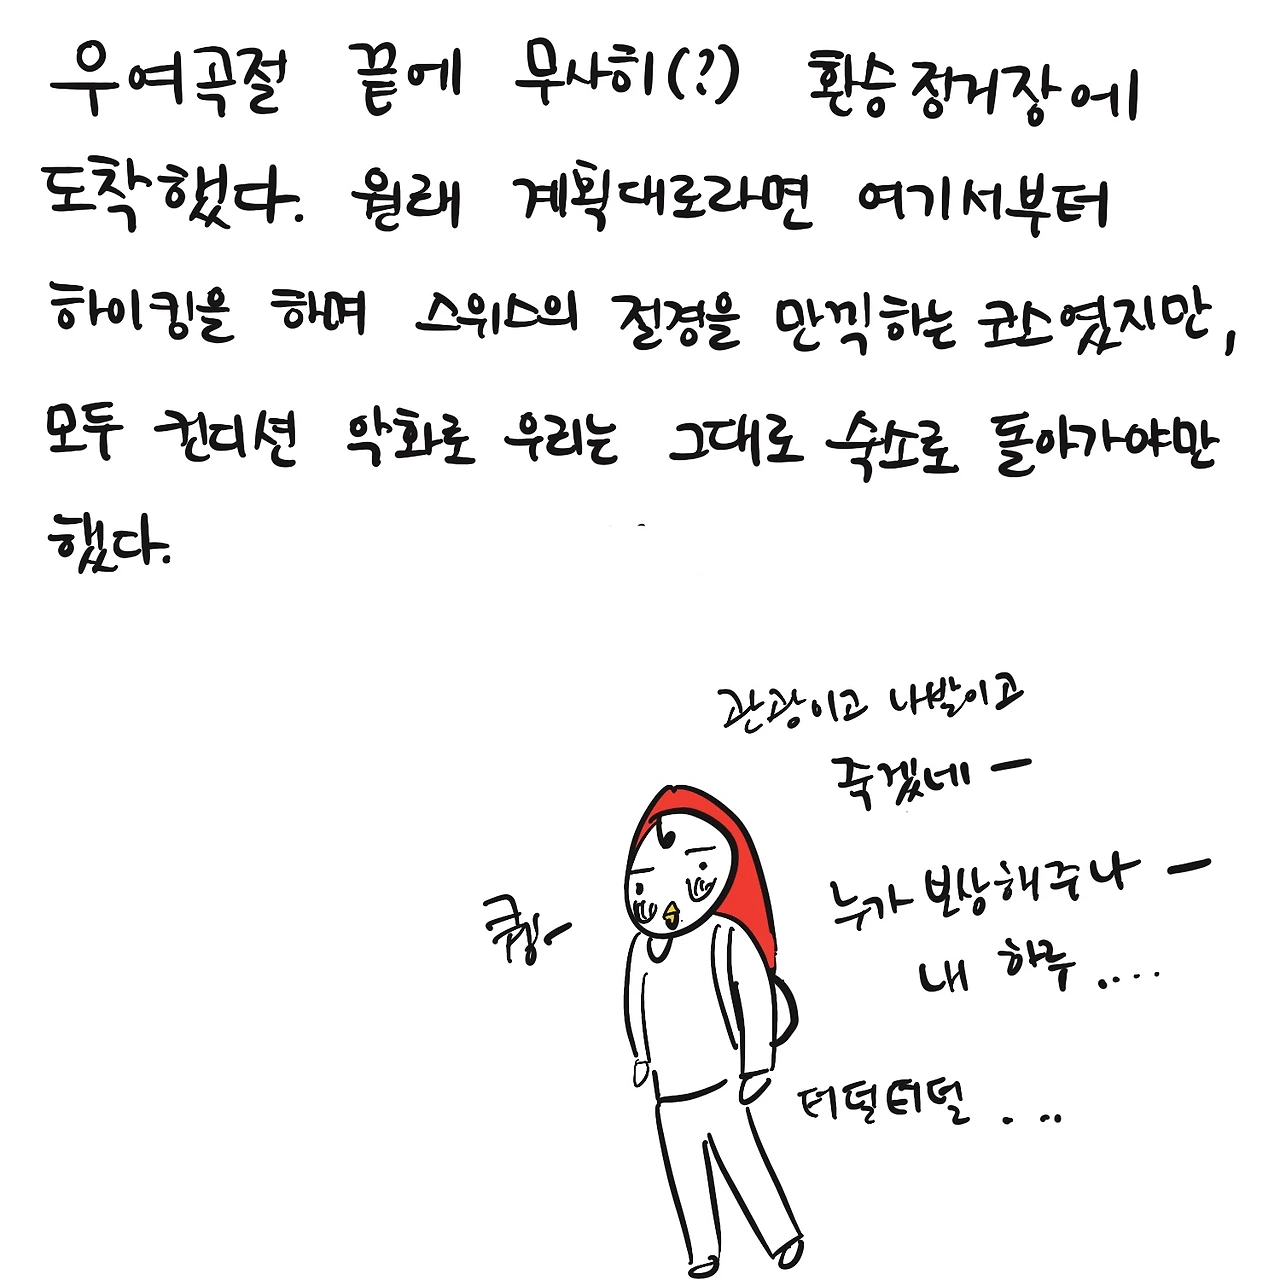 우여곡절 끝에 무사히(?) 환승 정거장에
도착했다. 원래 계획대로라면 여기서부터
하이킹을 하며 스위스의 절경을 만끽하는 코스였지만,
모두 컨디션 악화로 우리는 그대로 숙소로 돌아가야만
했다.
관광이고 나발이고
죽겠네 ー
누가 보상해주나 ー
내 하루 ....
터덜터덜 ...